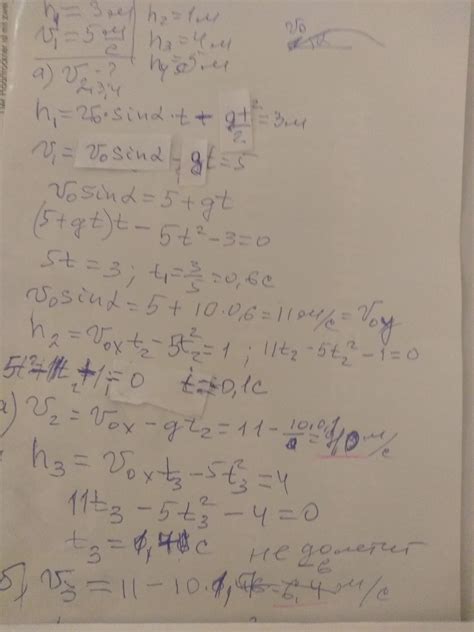 h₁ = 3м h₂ = 1м
v₁ = 5 м/с h₃ = 4м
а) v₂,₃,₄ - ? h₄ = 5м
v₀
h₁ = v₀·sinα·t - gt²/2 = 3м
v₁ = v₀sinα - gt = 5
v₀sinα = 5 + gt
(5+gt)t - 5t² - 3 = 0
5t = 3 ; t₁ = 3/5 = 0,6с
v₀sinα = 5 + 10·0,6 = 11 м/с = v₀y
h₂ = v₀ₓt₂ - 5t₂² = 1 ; 11t₂ - 5t₂² - 1 = 0
= 0 t = 0,1с
а) v₂ = v₀ₓ - gt₂ = 11 - 10·0,1 = 10 м/с
h₃ = v₀ₓt₃ - 5t₃² = 4
11t₃ - 5t₃² - 4 = 0
t₃ = с не долетит
б) v₃ = 11 - 10· м/с